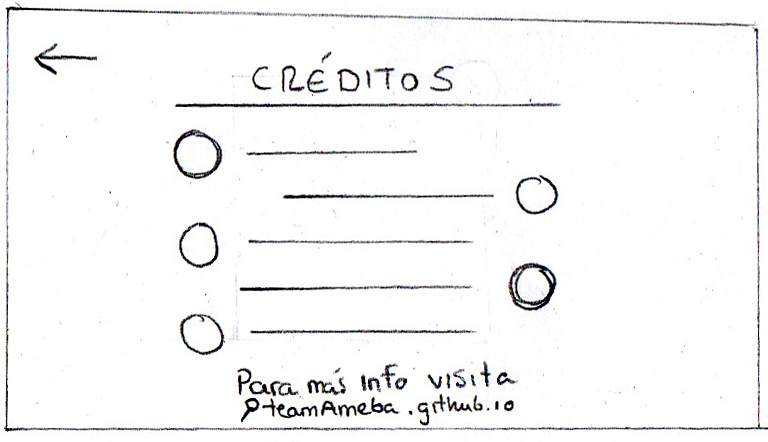 CRÉDITOS
Para más Info visita
teamAmeba.github.io